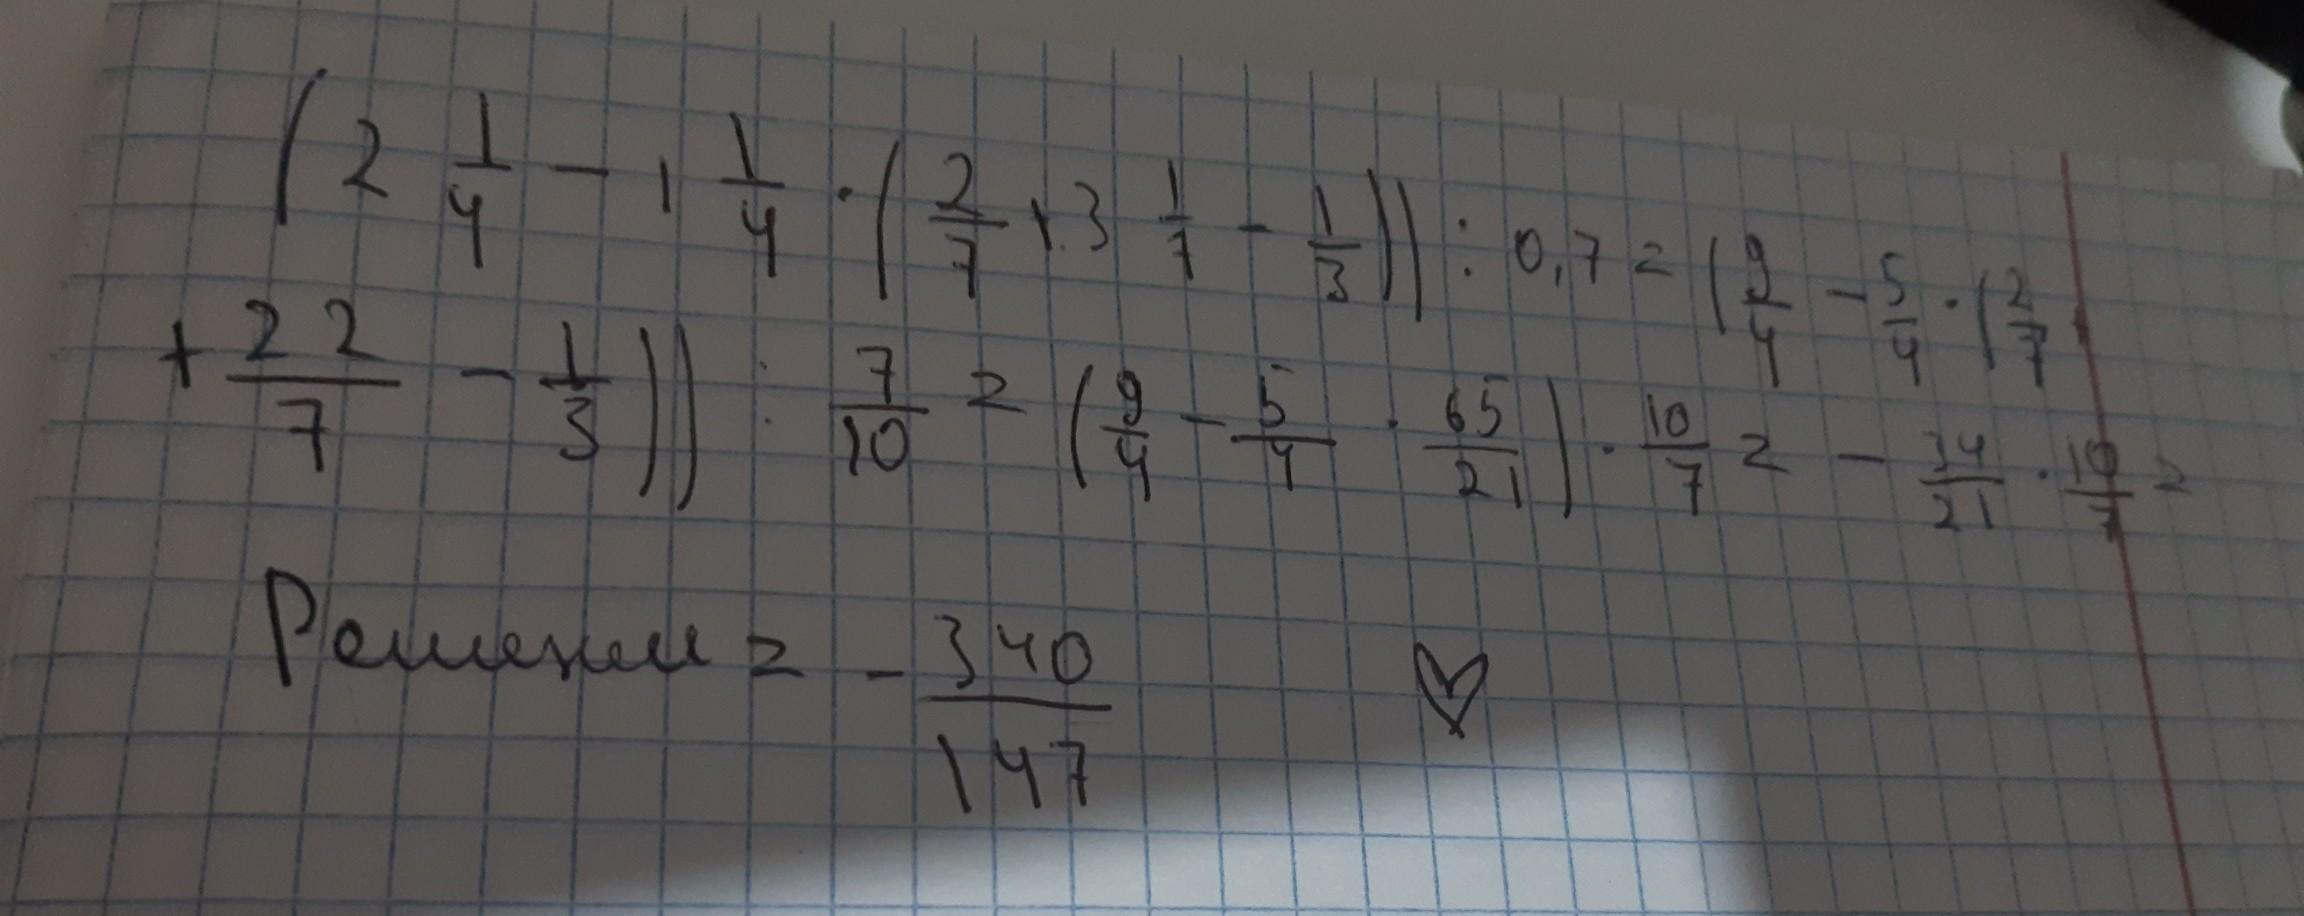 (2 1/4 - 1 1/4 · (2/7 + 3 1/7 - 1/3)) : 0,7 = (9/4 - 5/4 · (2/7 +
+ 22/7 - 1/3)) : 7/10 = (9/4 - 5/4 · 65/21) · 10/7 = - 34/21 · 10/7 =
Решении = - 340/147